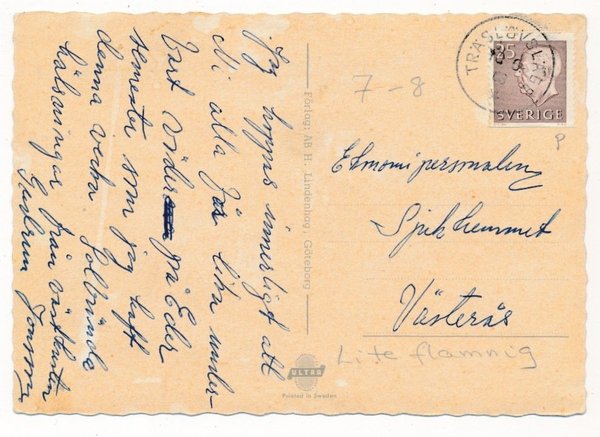 Jag hoppas innerligt att
Ni alla får lika under-
bart väder på Eder
semester som jag haft
denna vecka. Solbrända
hälsningar från västkusten
Gudrun
Förlag: AB H. Lindenhag, Göteborg
ULTRA
Printed in Sweden
7-8
TRÄSLÖVSLÄGE
35
SVERIGE
P
Ekonomipersonalen
Sjukhemmet
Västerås
Lite flammig